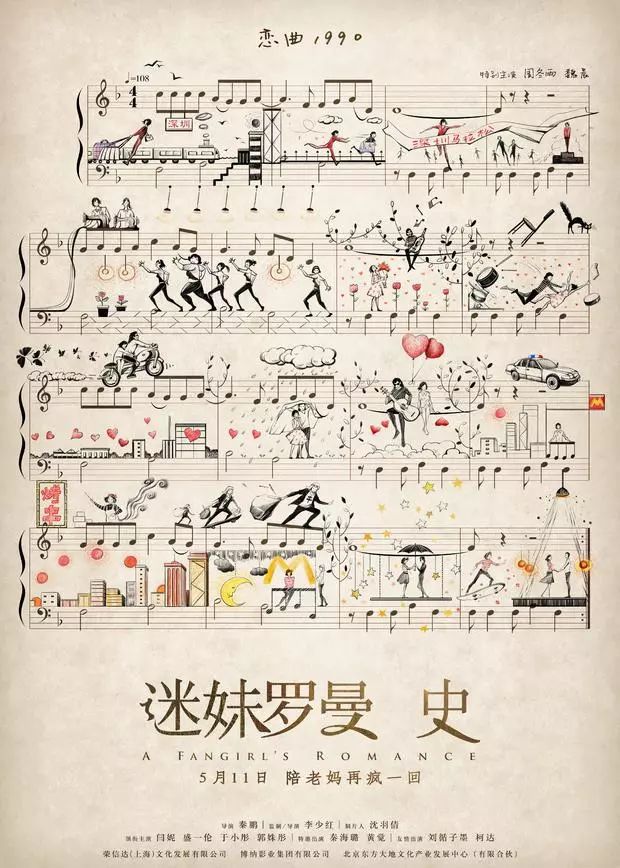 恋曲1990
特别主演 周冬雨 魏晨
=108
4
4
深圳
深圳马拉松
M
烤串
迷妹罗曼 史
A FANGIRL'S ROMANCE
5月11日 陪老妈再疯一回
导演 秦鹏 | 监制/导演 李少红 | 制片人 沈羽倩
领衔主演 闫妮 盛一伦 于小彤 郭姝彤 | 特邀出演 秦海璐 黄觉 | 友情出演 刘循子墨 柯达
荣信达(上海)文化发展有限公司 博纳影业集团有限公司 北京东方大地文化产业发展中心(有限合伙)